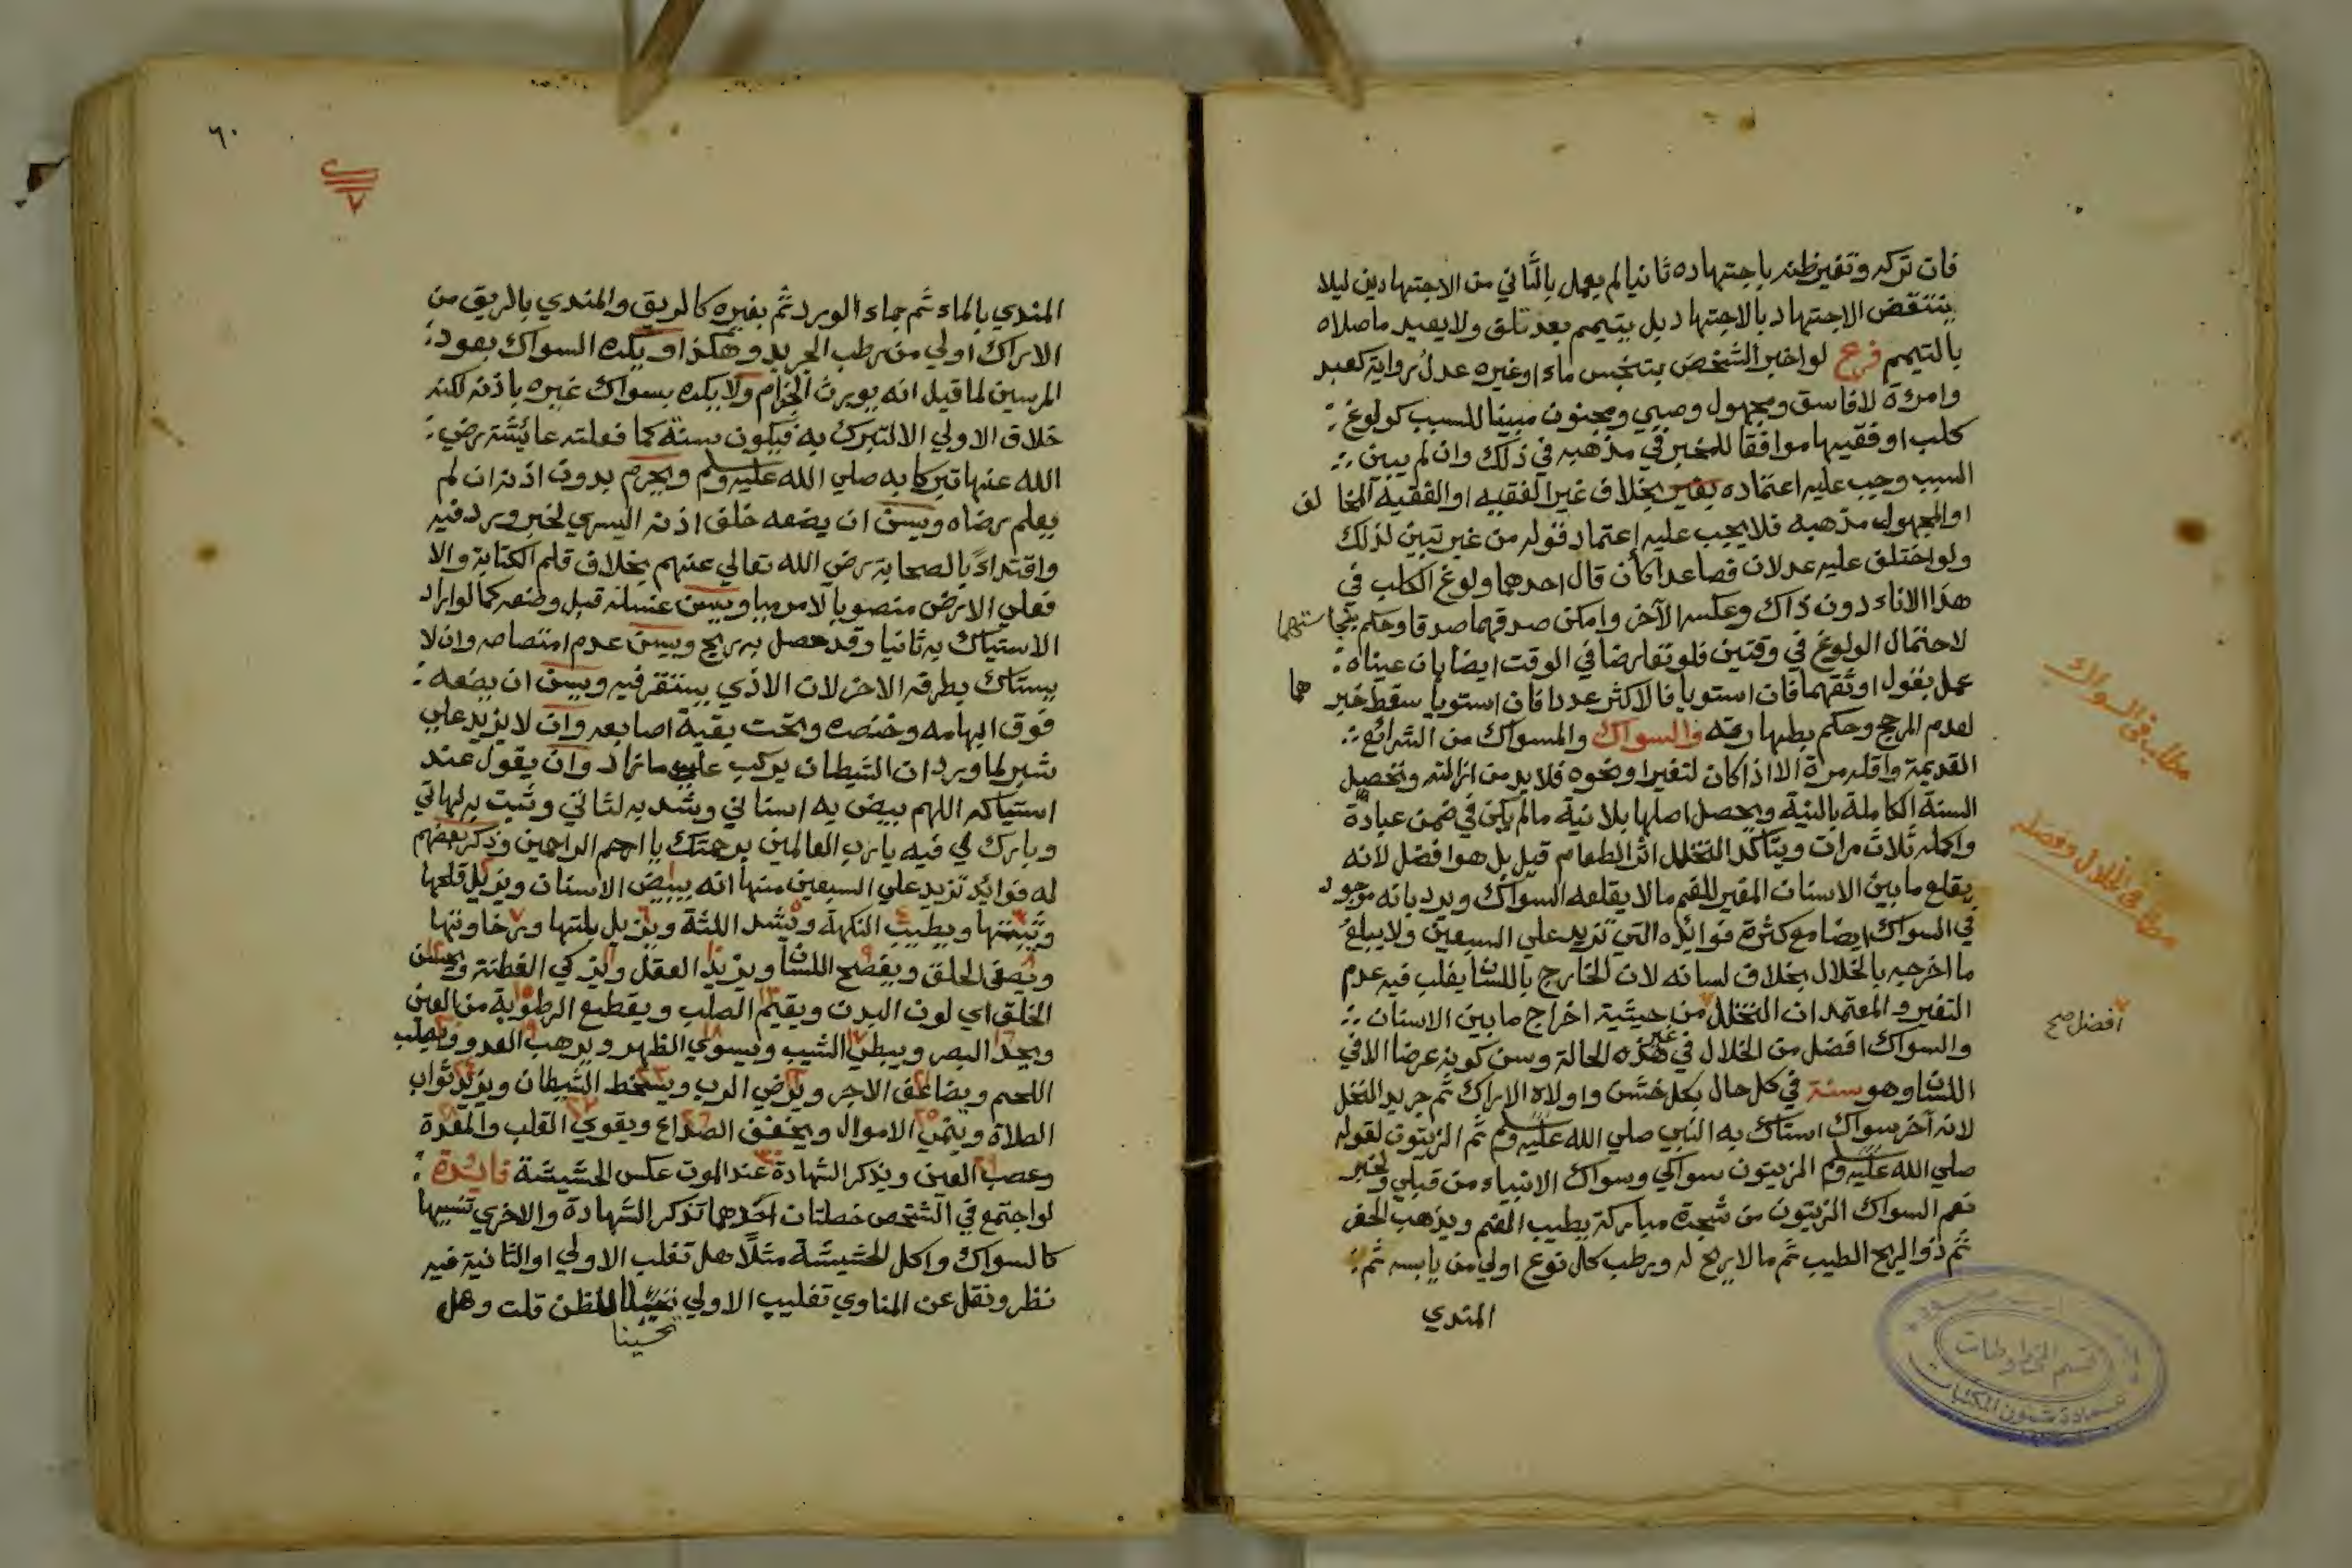 فان تركه وتغير ظنه باجتهاده ثانيا لم يعمل بالثاني من الاجتهادين ليلا
ينتقض الاجتهاد بالاجتهاد بل يتيمم بعد تلف ولا يعيد ما صلاه
بالتيمم فرع لو اخبر الشخص بتنجس ماء او غيره عدل رواية كعبد
وامرءة لا فاسق ومجهول وصبي ومجنون مبينا للسبب كولوغ
كلب او فقيها موافقا للمخبر في مذهبه في ذلك وان لم يبين
السبب وجب عليه اعتماده بخلاف غير الفقيه او الفقيه المخالف
او المجهول مذهبه فلا يجب عليه إعتماد قوله من غير تبين لذلك
ولو اختلف عليه عدلان فصاعدا كأن قال احدهما ولوغ الكلب في
هذا الاناء دون ذاك وعكسه الآخر وامكن صدقهما صدقا وحكم بنجاستهما
لاحتمال الولوغ في وقتين فلو تعارضا في الوقت ايضا بان عيناه
عمل بقول اوثقهما فان استويا فالاكثر عددا فان استويا سقط خبرهما
لعدم المرجح وحكم بطهارته والسواك والمسواك من الشرائع
القديمة واقله مرة الا اذا كان لتغير او نحوه فلا بد من ازالته وتحصيل
السنة الكاملة بالنية ويحصل اصلها بلا نية ما لم يكن في ضمن عبادة
واكمله ثلاث مرات ويتأكد التخلل اثر الطعام قيل بل هو افضل لانه
يقلع ما بين الاسنان المغير للفم ما لا يقلعه السواك ويرد بانه موجود
في السواك ايضا مع كثرة فوائده التي تزيد على السبعين ولا يبلع
ما اخرجه بالخلال بخلاف لسانه لان الخارج باللسان يغلب فيه عدم
التغير والمعتمد ان التخلل من حيثية اخراج ما بين الاسنان
افضل صح
والسواك افضل من الخلال في غير هذه الحالة وسن كونه عرضا الا في
اللسان وهو سنة في كل حال بكل خشن واولاه الاراك ثم جريد النخل
لانه آخر سواك استاك به النبي صلي الله عليه وسلم ثم الزيتون لقوله
صلي الله عليه وسلم الزيتون سواكي وسواك الانبياء من قبلي ولخبر
نعم السواك الزيتون من شجرة مباركة يطيب الفم ويذهب الحفر
ثم ذو الريح الطيب ثم ما لا ريح له ورطب كل نوع اولي من يابسه ثم
المندي
مطلب في السواك
مطلب في الخلال وفضله
قسم المخطوطات
عمادة شئون المكتبات
٦٠
المندي بالماء ثم بماء الورد ثم بغيره كالريق والمندي بالريق من
الاراك اولي من رطب الجريد وهكذا ويكره السواك بعود
المرسين لما قيل انه يورث الجزام ولا يكره بسواك غيره باذنه لكنه
خلاف الاولي الا لتبرك به فيكون سنة كما فعلته عائشة رضي
الله عنها تبركا به صلي الله عليه وسلم ويحرم بدون اذنه ان لم
يعلم رضاه ويسن ان يضعه خلف اذنه اليسري لخبر ورد فيه
واقتداءً بالصحابة رضي الله تعالي عنهم بخلاف قلم الكتابة والا
فعلي الارض منصوبا لا مرميا ويسن غسله قبل وضعه كما لو اراد
الاستياك به ثانيا وقد حصل به ريح ويسن عدم امتصاصه وان لا
يستاك بطرفه الاخر لان الاذي يستقر فيه ويسن ان يضعه
فوق ابهامه وخنصره وتحت بقية اصابعه وان لا يزيد علي
شبر لما ورد ان الشيطان يركب علي ما زاد وان يقول عند
استياكه اللهم بيض به اسناني وشد به لثاتي وثبت به لهاتي
وبارك لي فيه يا رب العالمين برحمتك يا ارحم الراحمين وذكر بعضهم
له فوائد تزيد علي السبعين منها انه يبيض الاسنان ويزيل قلحها
ويثبتها ويطيب النكهة ويشد اللثة ويزيل بلتها ورخاوتها
ويصفي الحلق ويفصح اللسان ويزيد العقل ويزكي الفطنة ويحسن
الخلق اي لون البدن ويقيم الصلب ويقطع الرطوبة من العين
ويحد البصر ويبطئ الشيب ويسوي الظهر ويرهب العدو ويصلب
اللحم ويضاعف الاجر ويرضي الرب ويسخط الشيطان ويزيد ثواب
الصلاة وينمي الاموال ويخفف الصداع ويقوي القلب والمعدة
وعصب العين ويذكر الشهادة عند الموت عكس الحشيشة فائدة
لو اجتمع في الشخص خصلتان احدهما تذكر الشهادة والاخري تنسيها
كالسواك واكل الحشيشة مثلًا هل تغلب الاولي او الثانية فيه
نظر ونقل عن المناوي تغليب الاولي للظن قلت وهل
تحسينا